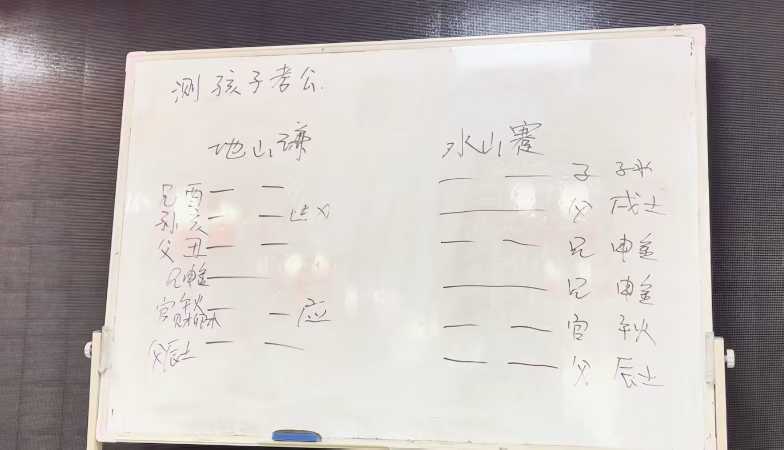 测孩子考公.
地山谦
兄酉
孙亥 世 X
父丑
兄申金
官 应
父辰土
水山蹇
子 子水
父 戌土
兄 申金
兄 申金
官 午火
父 辰土